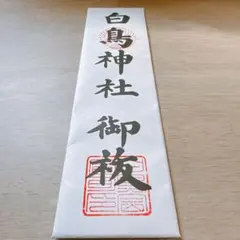 白鳥神社 御祓